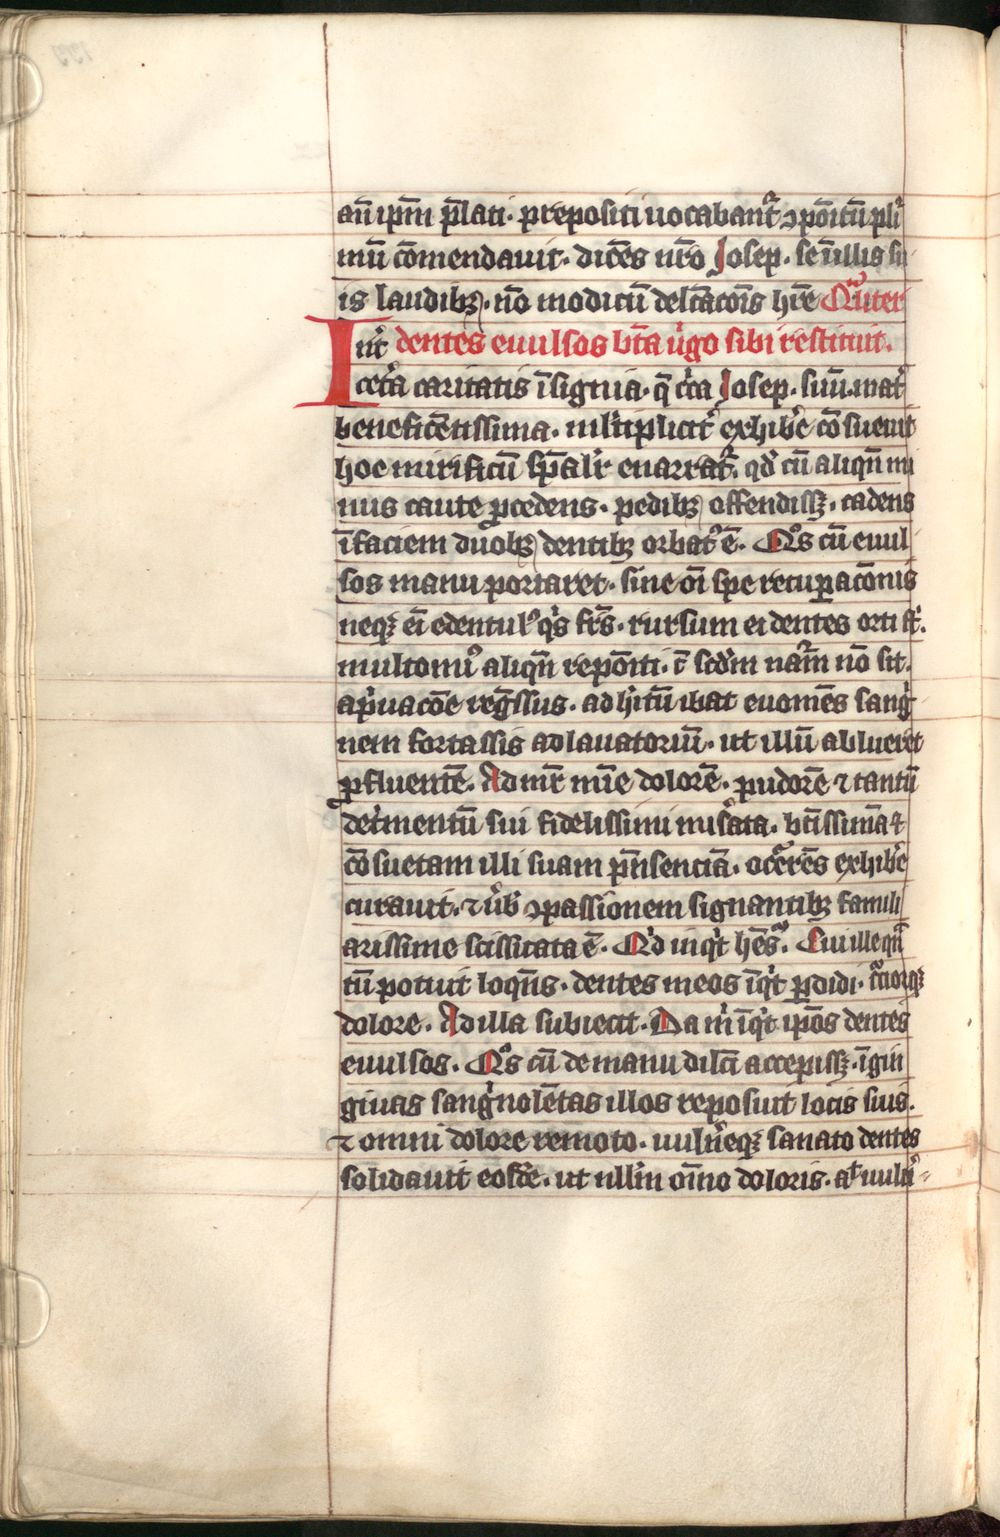 an̄ ip̄m p̄lati. prepositi uocabant᷑ ↄpōitū pli
mū cōmendauit. dicēs nr̄o Josep. se ī illis su
is laudibꝫ. nō modicū delc̄acōis hr̄e Qͣlit͛
dentes euulsos bt̄a uͥgo sibi restituit.
Int͛ cet͛a caritatis īsignia. q̄ cͥca Josep. suū. mat͛
beneficētissima. mltiplicit͛ exhibe͛ cōsueuit
hoc mirificū spāalr̄ enarrat᷑. qd̓ cū aliqn̄ mi
nus caute ꝓcedens. pedibꝫ offendissꝫ. cadens
ī faciem duobꝫ dentibꝫ orbatꝰ ē. Qͦs cū euul
sos manu portaret. sine oī spe recuꝑacōnis
neqꝫ eī edentulꝰ qͥs fr̄s. rursum ei dentes orti st̓.
multomiꝰ aliqn̄ repōiti. ⁊̄ scd̓m nāͣm nō sit.
a pͥuacōe regͣssus. ad hītū ibat euomēs sangͥ
nem fortassis ad lauatoriū. ut illū ablueret
ꝓfluentē. Ad mr̄ mīe dolorē. pudorē ⁊ tantū
det͛mentū sui fidelissimi mis͛ata. bt̄issima ⁊
cōsuetam illi suam pn̄senciā. occr̄ēs exhibe͛
curauit. ⁊ u͛b̓ ↄpassionem signantibꝫ famili
arissime scissitata ē. Qͥd inqͥt hēs. Cui ille qn̄
tū potuit loqn̄s. dentes meos īqͥt ꝑdidi. cͣciorqꝫ
dolore. Ad illa subiecit. Da mͥ īqͥt ip̄os dentes
euulsos. Qͦs cū de manu dilc̄i accepissꝫ. ī gin
giuas sangͥnolētas illos reposuit locis suis.
⁊ omni dolore remoto. uuln͛eqꝫ sanato dentes
solidauit eosdē. ut ulliꝰ oīno doloris. at uuln͛